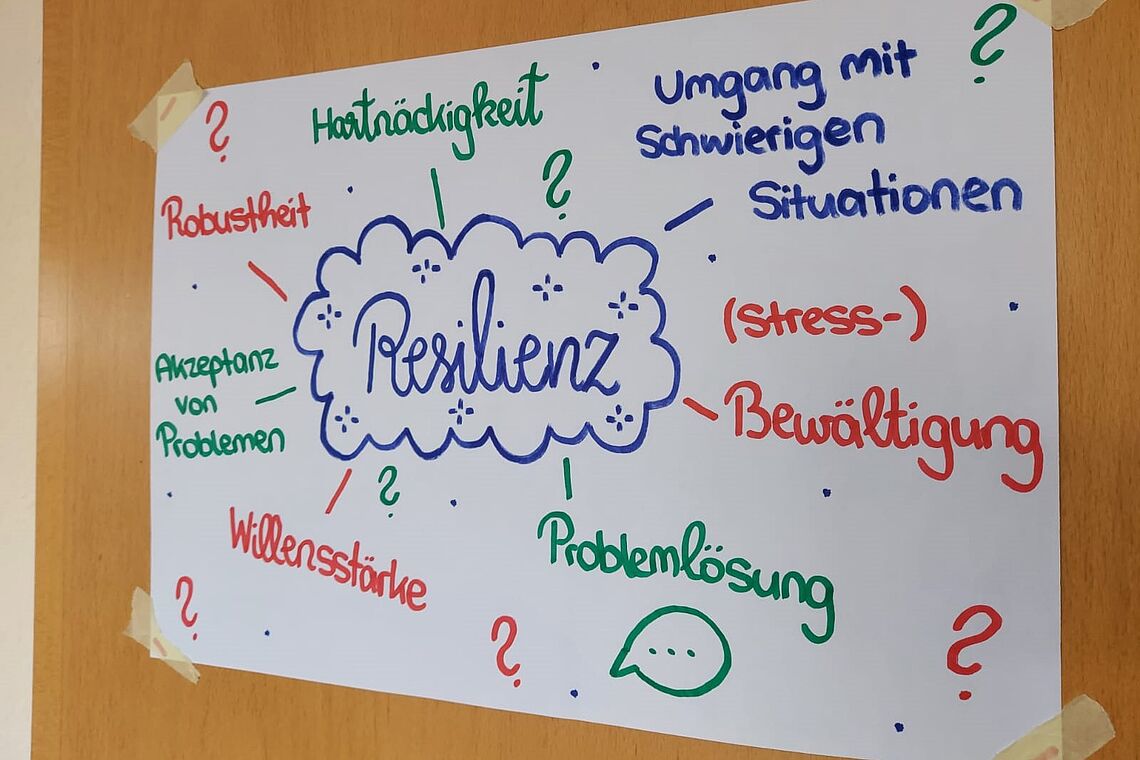 ?
Hartnäckigkeit
Umgang mit
Schwierigen
Situationen
?
?
Robustheit
Resilienz
(Stress-)
Bewältigung
Akzeptanz
von
Problemen
?
Willensstärke
Problemlösung
...
?
?
?